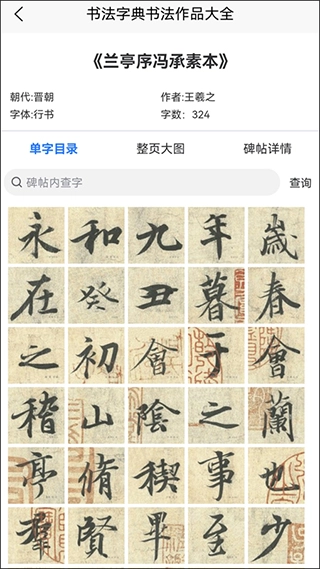 书法字典书法作品大全
《兰亭序冯承素本》
朝代:晋朝
作者:王羲之
字体:行书
字数：324
单字目录
整页大图
碑帖详情
碑帖内查字
查询
永和九年歲
在癸丑暮春
之初會于會
稽山陰之蘭
亭脩稧事也
羣賢畢至少